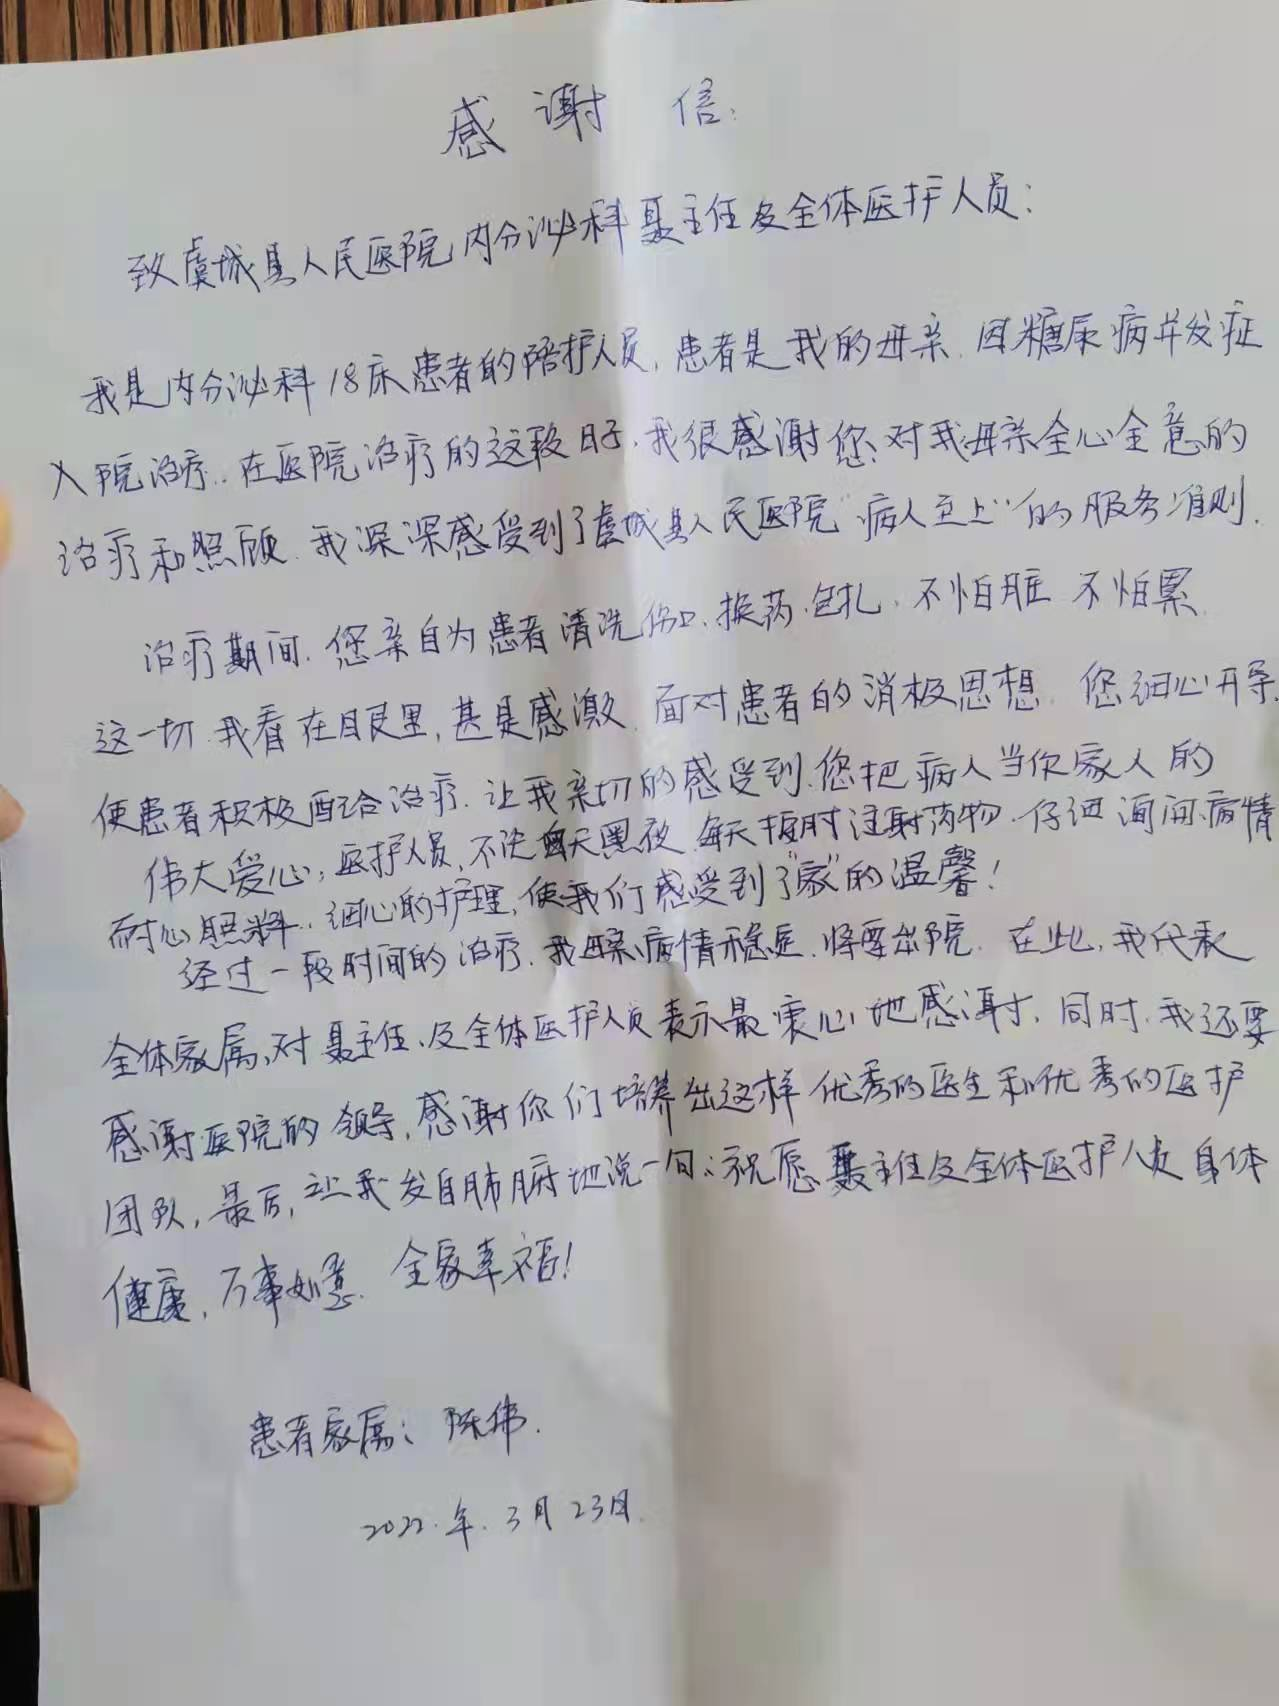 感谢信:
致虞城县人民医院内分泌科聂主任及全体医护人员:
我是内分泌科18床患者的陪护人员,患者是我的母亲.因糖尿病并发症
入院治疗..在医院治疗的这段日子.我很感谢您、对我母亲全心全意的
治疗和照顾.我深深感受到了虞城县人民医院"病人至上"的服务准则.
治疗期间.您亲自为患者清洗伤口、换药.包扎.不怕脏 不怕累.
这一切.我看在眼里,甚是感激.面对患者的消极思想.您细心开导
使患者积极配合治疗.让我亲切的感受到.您把病人当作家人的
伟大爱心;医护人员,不决白天黑夜 每天按时注射药物.仔细询问病情
耐心照料..细心的护理,使我们感受到了"家"的温馨!
经过一段时间的治疗.我母亲病情稳定.将要出院.在此,我代表
全体家属、对聂主任、及全体医护人员表示最衷心地感谢.同时.我还要
感谢医院的领导,感谢你们培养出这样优秀的医生和优秀的医护
团队,最后,让我发自肺腑地说一句:祝愿聂主任及全体医护人员身体
健康,万事如意.全家幸福!
患者家属:陈伟.
2022.年.3月23日.